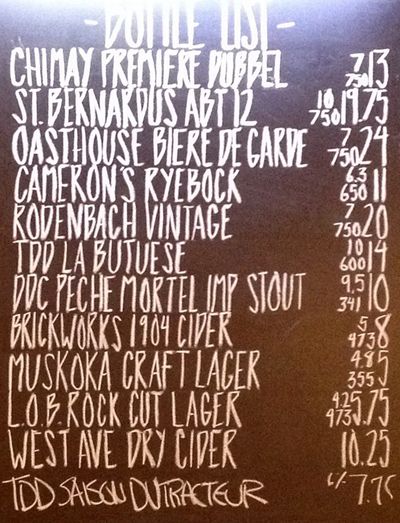 - BOTTLE LIST -
CHIMAY PREMIERE DUBBEL 7 750 13
ST. BERNARDUS ABT 12 10 750 19.75
OASTHOUSE BIERE DE GARDE 7 750 24
CAMERON'S RYEBOCK 6.3 650 11
RODENBACH VINTAGE 7 750 20
TDD LA BUTUESE 10 600 14
DDC PECHE MORTEL IMP STOUT 9.5 341 10
BRICKWORKS 1904 CIDER 5 473 8
MUSKOKA CRAFT LAGER 4.85 355 5
L.O.B. ROCK CUT LAGER 4.25 473 5.75
WEST AVE DRY CIDER 10.25
TDD SAISON DUTRACTEUR